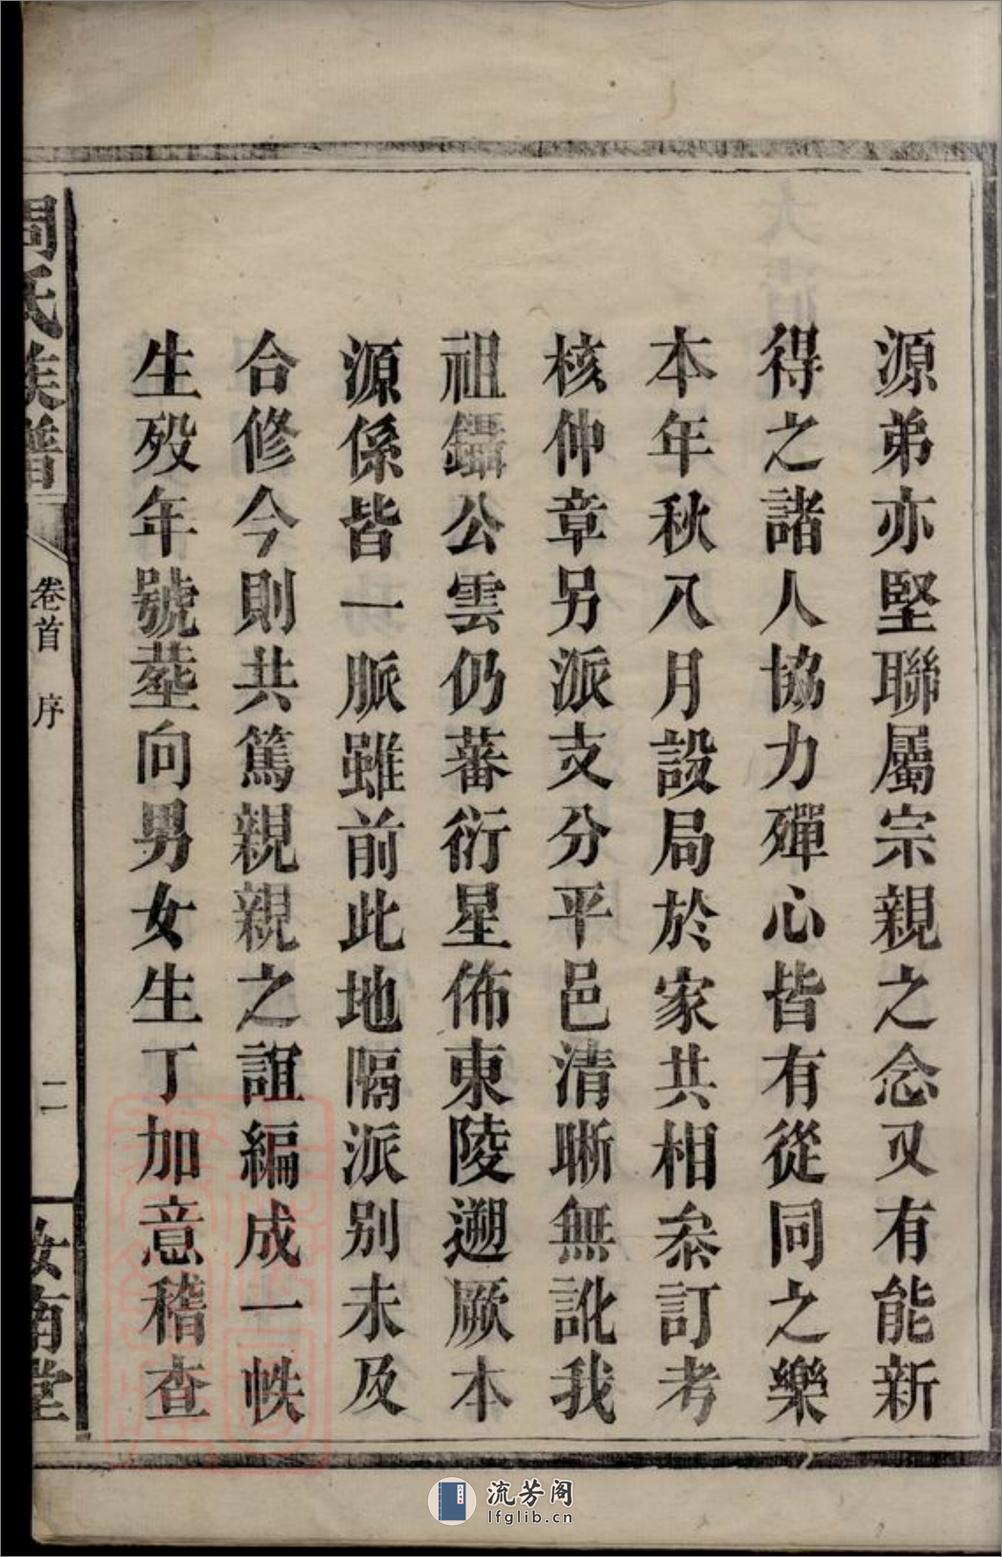 源弟亦堅聯屬宗親之念又有能新
得之諸人協力殫心皆有從同之樂
本年秋八月設局於家共相叅訂考
核仲章另派支分平邑清晰無訛我
祖鑷公雲仍蕃衍星佈東陵遡厥本
源係皆一脈雖前此地隔派别未及
合修今則共篤親親之誼編成一帙
生殁年號塟向男女生丁加意稽查
周氏族譜
卷首 序
二
汝南堂
流芳阁
lfglib.cn